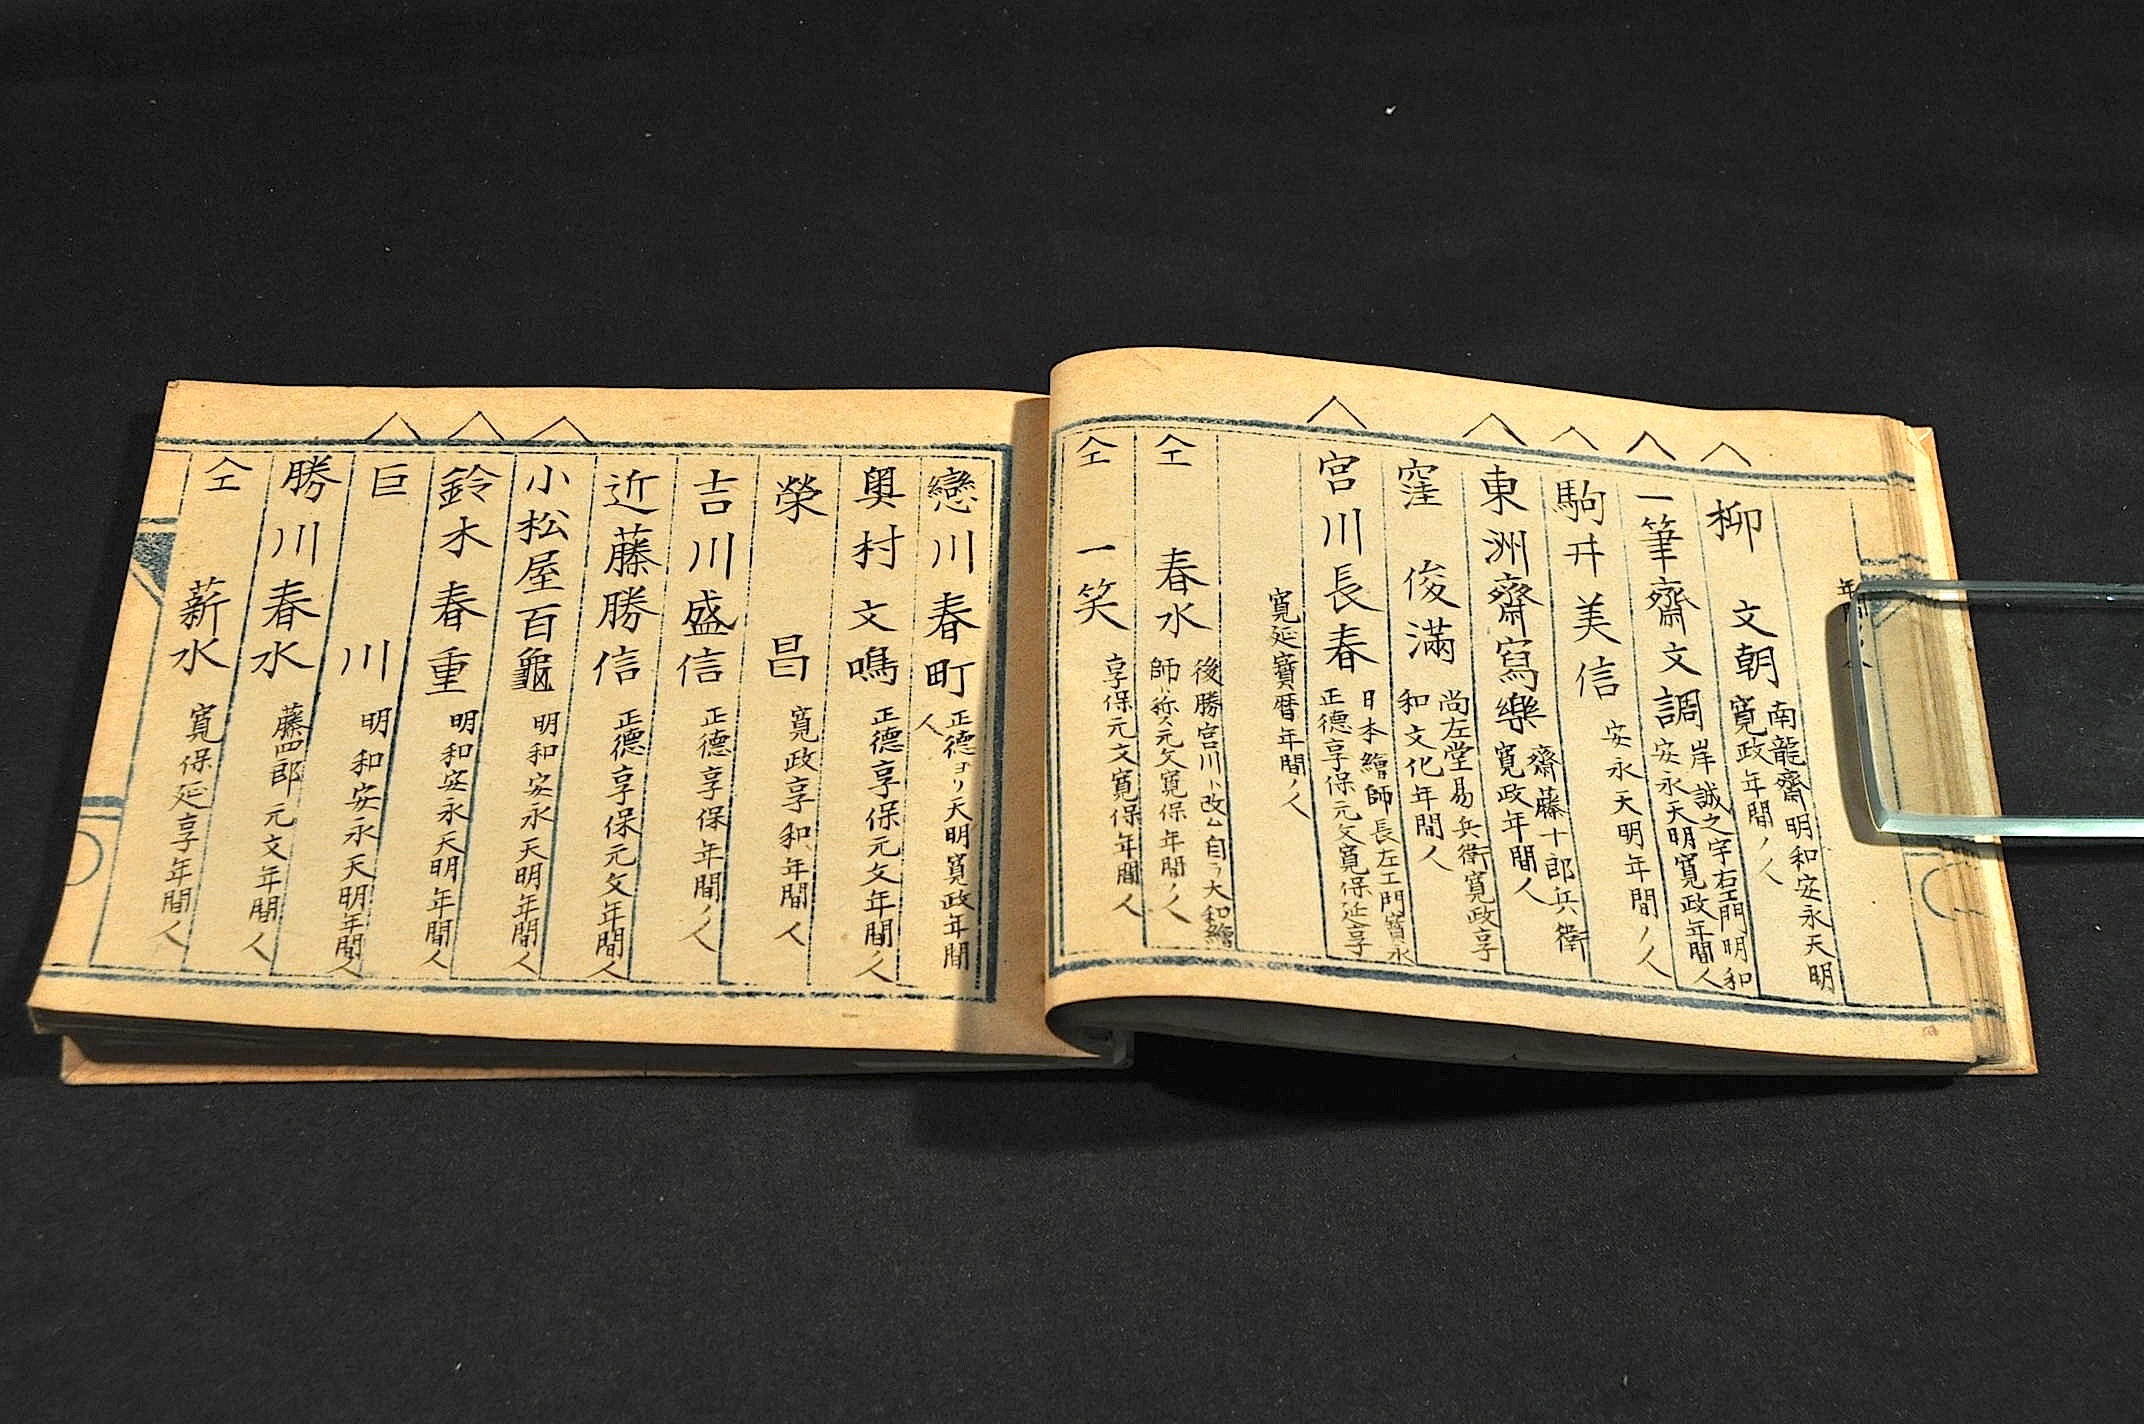 年間ノ人
柳 文朝 南龍齋明和安永天明
寛政年間ノ人
一筆齋文調 岸誠之字右エ門明和
安永天明寛政年間人
駒井美信 安永天明年間ノ人
東洲齋寫樂 齋藤十郎兵衛
寛政年間人
窪 俊滿 尚左堂易兵衛寛政享
和文化年間人
宮川長春 日本繪師長左エ門寳永
正德享保元文寛保延享
寛延寳暦年間ノ人
仝 春水 後勝宮川ト改ム自ラ大和繪
師ト称ス元文寛保年間ノ人
仝 一笑 享保元文寛保年間人
戀川春町 正德ヨリ天明寛政年間
人
奥村文鳴 正德享保元文年間ノ人
榮昌 寛政享和年間人
吉川盛信 正德享保年間ノ人
近藤勝信 正德享保元文年間人
小松屋百龜 明和安永天明年間人
鈴木春重 明和安永天明年間人
巨川 明和安永天明年間人
勝川春水 藤四郎元文年間人
仝 薪水 寛保延享年間人